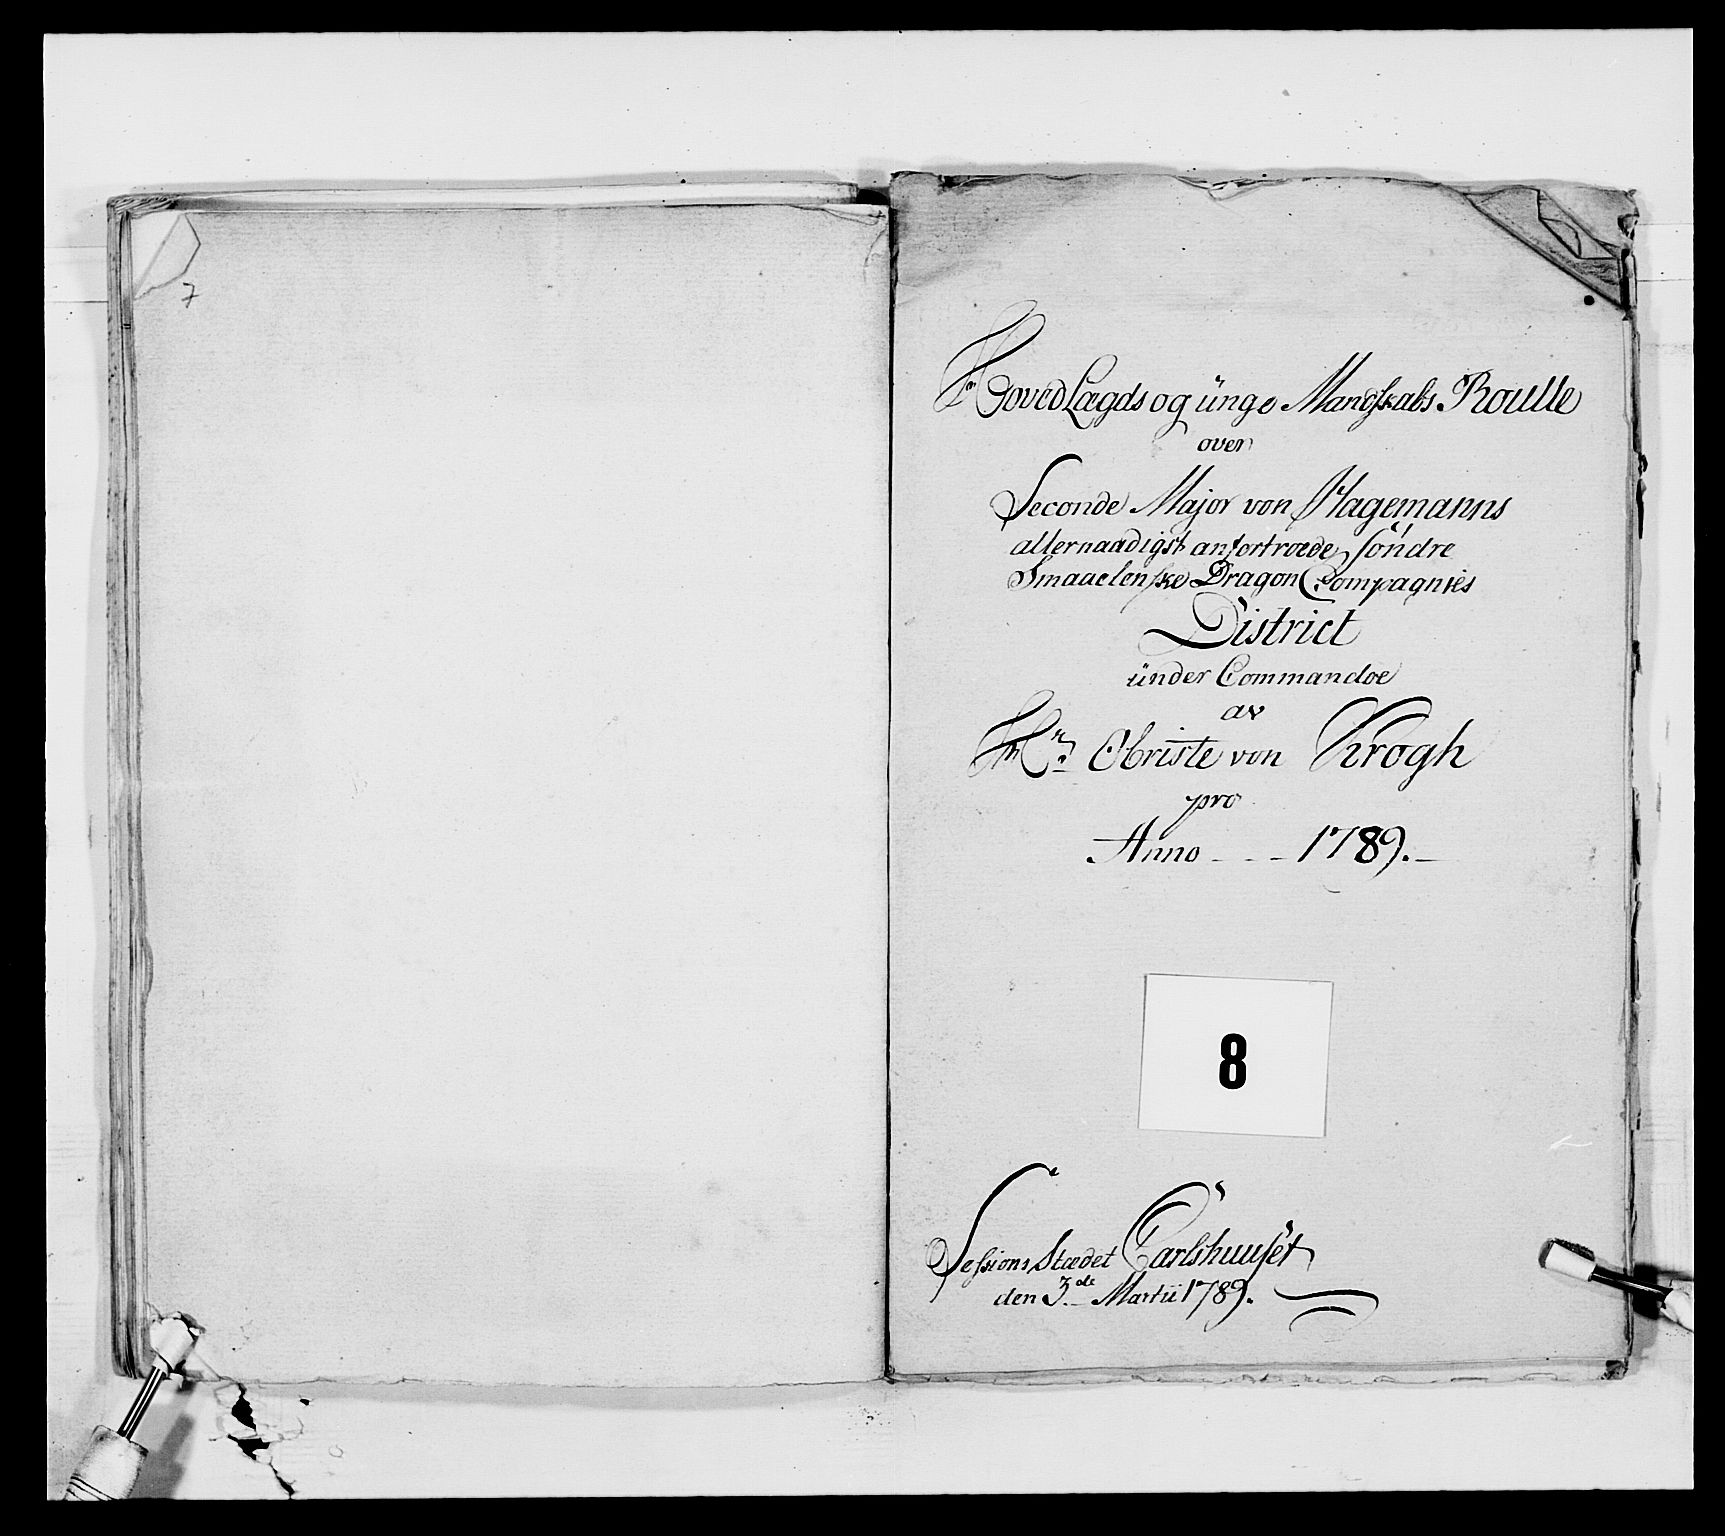 7
Hoved Lægds og ünge Mandskabs Roulle
over
Seconde Major von Hagemanns
allernaadigst anfortroede Söndre
Smaaelenske Dragon Compagnies
District
ünder Commandoe
av
Hr. Obriste von Krogh
pro
Anno - - - 1789. -
8
Sessions Stædet Carlshuuset
den 3.de Martii 1789.